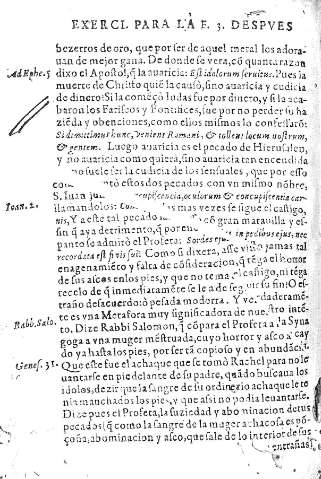 EXERCI. PARA LA F. 3. DESPVES
bezerros de oro, que por ser de aquel metal los adora-
uan de mejor gana. De donde se vera, cō quanta razon
Ad Ephe. 5
dixo el Apostol, q̄ la auaricia: Est idolorum seruitus. Pues la
muerte de Christo quiē la causò, sino auaricia y cudicia
de dinero? Si la comēçò Iudas fue por dinero, y si la aca-
baron los Fariseos y Pontifices, fue por no perder su ha-
ziēda y obenciones, como ellos mismos lo confessarō:
Si dimittimus hunc, venient Romani, & tollent locum nostrum,
& gentem. Luego auaricia es el pecado de Hierusalen,
y no auaricia como quiera, sino auaricia tan encendida
suele ser la cudicia de los sensuales, que por esso
estos dos pecados con vn mismo nōbre,
Ioan. 2.
S. Iuan concupiscentia oculorum & concupiscentia car
llamandolos: mas vezes se sigue el castigo,
nis, Y a este tal pecado cō gran marauilla y es-
q̄ aya detrimento, q̄ por in pedibus eius, nec
panto se admirò el Profeta: Sordes
recordata est finis sui. Como si dixera, jamas tal
enagenamiēto y falta de cōsideracion, q̄ tēga el horror
de sus ascos en los pies, y que no tema castigo, ni tēga
recelo de q̄ inmediatamēte se le a de seguir su fin? O es-
traño desacuerdo! ò pesada modorra. Y verdaderamē-
te es vna Metafora muy significadora de nuestro intē-
Rabb. Salo.
to. Dize Rabbi Salomon, q̄ cōpara el Profeta a la Syna
goga a vna muger mēstruada, cuyo horror y asco a cay
do ya hasta los pies, por ser tā copioso y en abundācia.
Genes. 31.
Que este fue el achaque que se tomò Rachel para no le
uantarse en pie delante de su padre, quādo buscaua los
idolos, dezir que la sangre de su ordinerio achaque le te
nia manchados los pies, y que assi no podia leuantarse.
Dize pues el Profeta, la suziedad y abominacion de tus
pecados (q̄ como la sangre de la muger achacosa es pō-
çoña, abominacion y asco, que sale de lo interior de sus
entrañas)